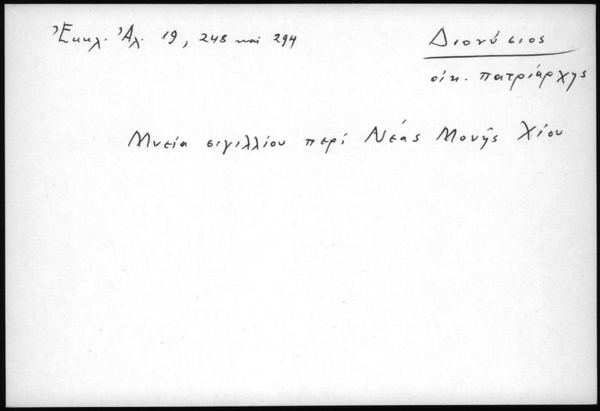 Ἐκκλ. Ἀλ. 19, 248 καὶ 294
Διονύσιος
οἰκ. πατριάρχης
Μνεία σιγιλλίου περί Νέας Μονῆς Χίου